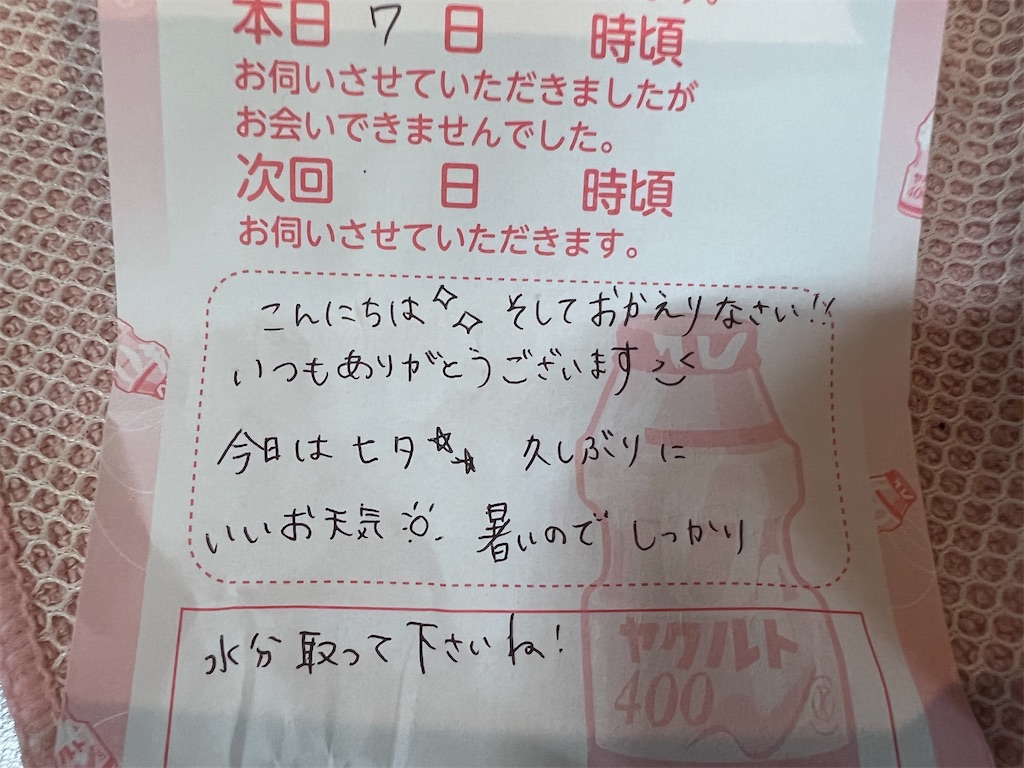 本日 7 日 時頃
お伺いさせていただきましたが
お会いできませんでした。
次回 日 時頃
お伺いさせていただきます。
こんにちは そしておかえりなさい!!
いつもありがとうございます
今日は七夕 久しぶりに
いいお天気 暑いので しっかり
水分取って下さいね!
ヤクルト
400